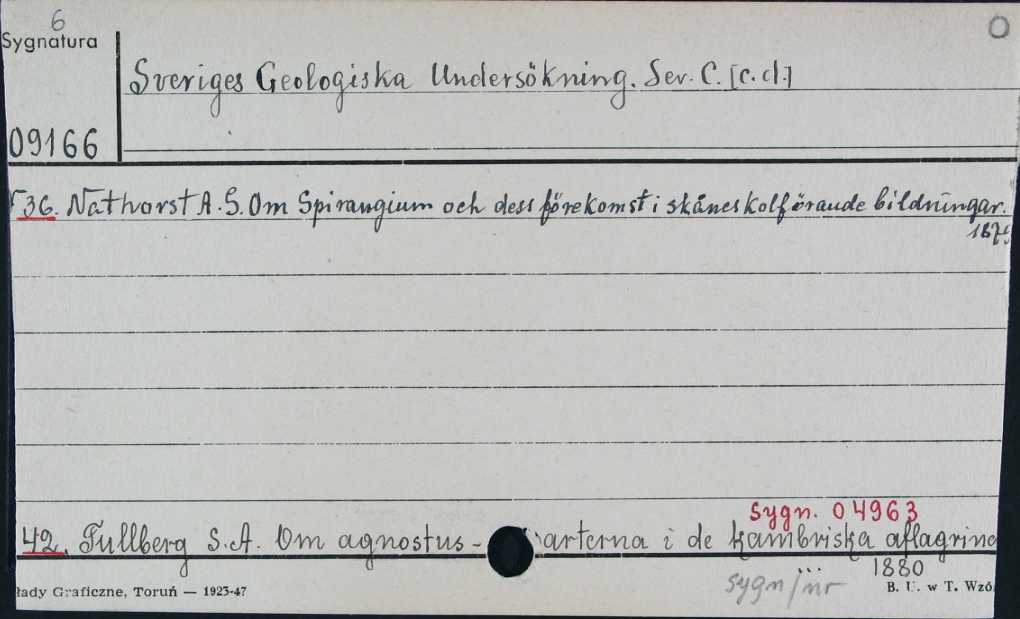 6
O
Sygnatura
Sveriges Geologiska Undersökning. Ser. C. [c.d.]
09166
36. Nathorst A.S. Om Spirangium och dess förekomst i skånes kolförande bildningar.
187
sygn. 04963
42. Tullberg S.A. Om agnostus - arterna i de kambriska aflagrine
1880
sygn/nr
łady Graficzne, Toruń — 1923-47
B. U. w T. Wzó